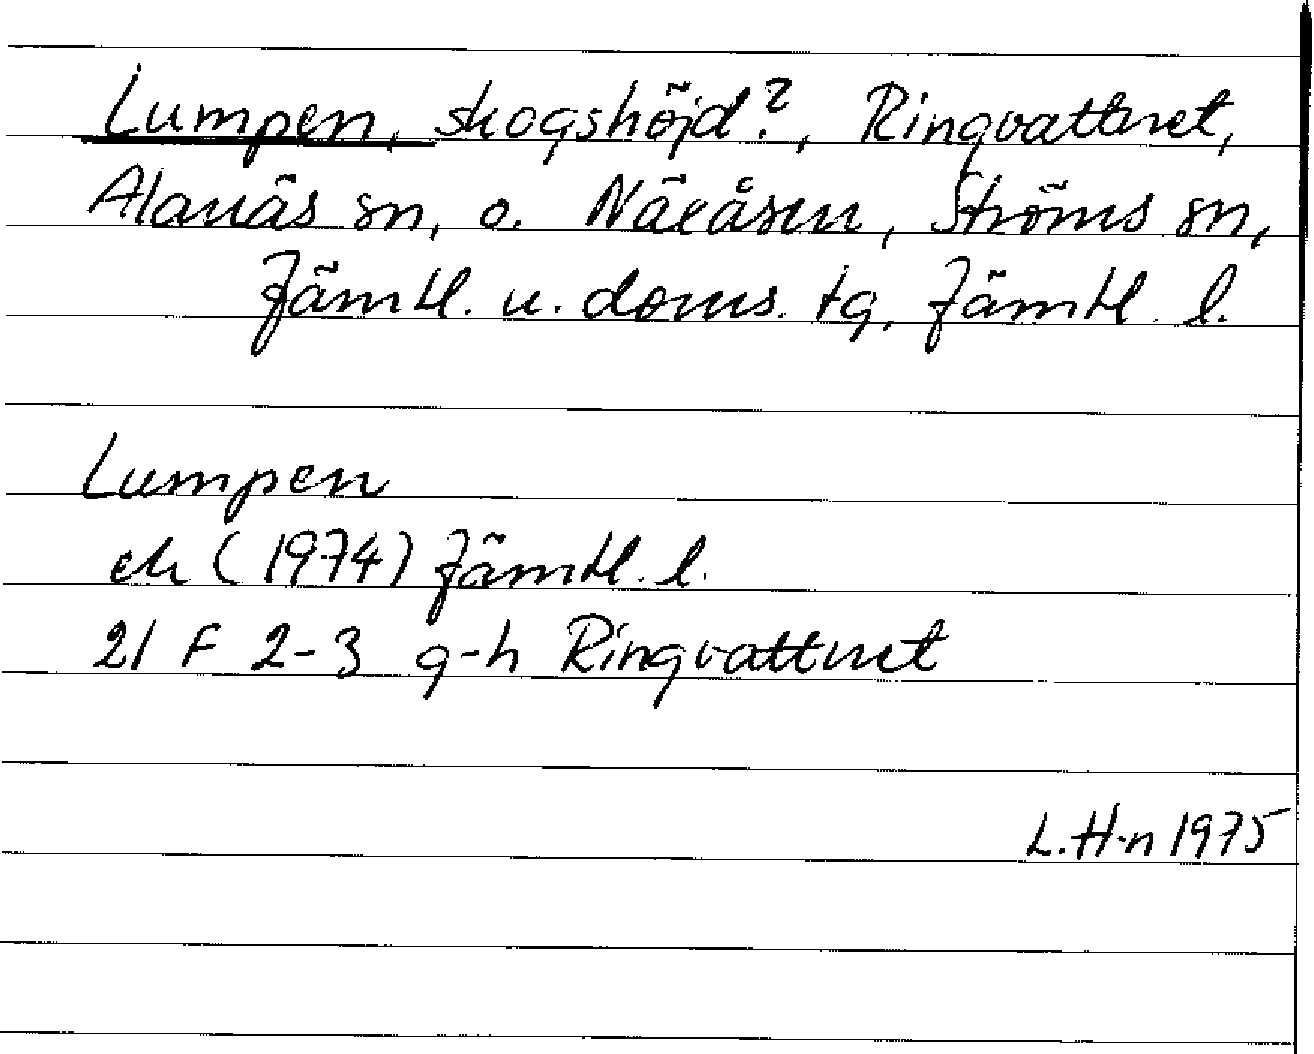 Lumpen, skogshöjd?, Ringvattnet,
Alanäs sn, o. Näxåsen, Ströms sn,
Jämtl. n. doms. tg, Jämtl. l.
Lumpen
ek (1974) Jämtl. l.
21 F 2-3 g-h Ringvattnet
L. H-n 1975